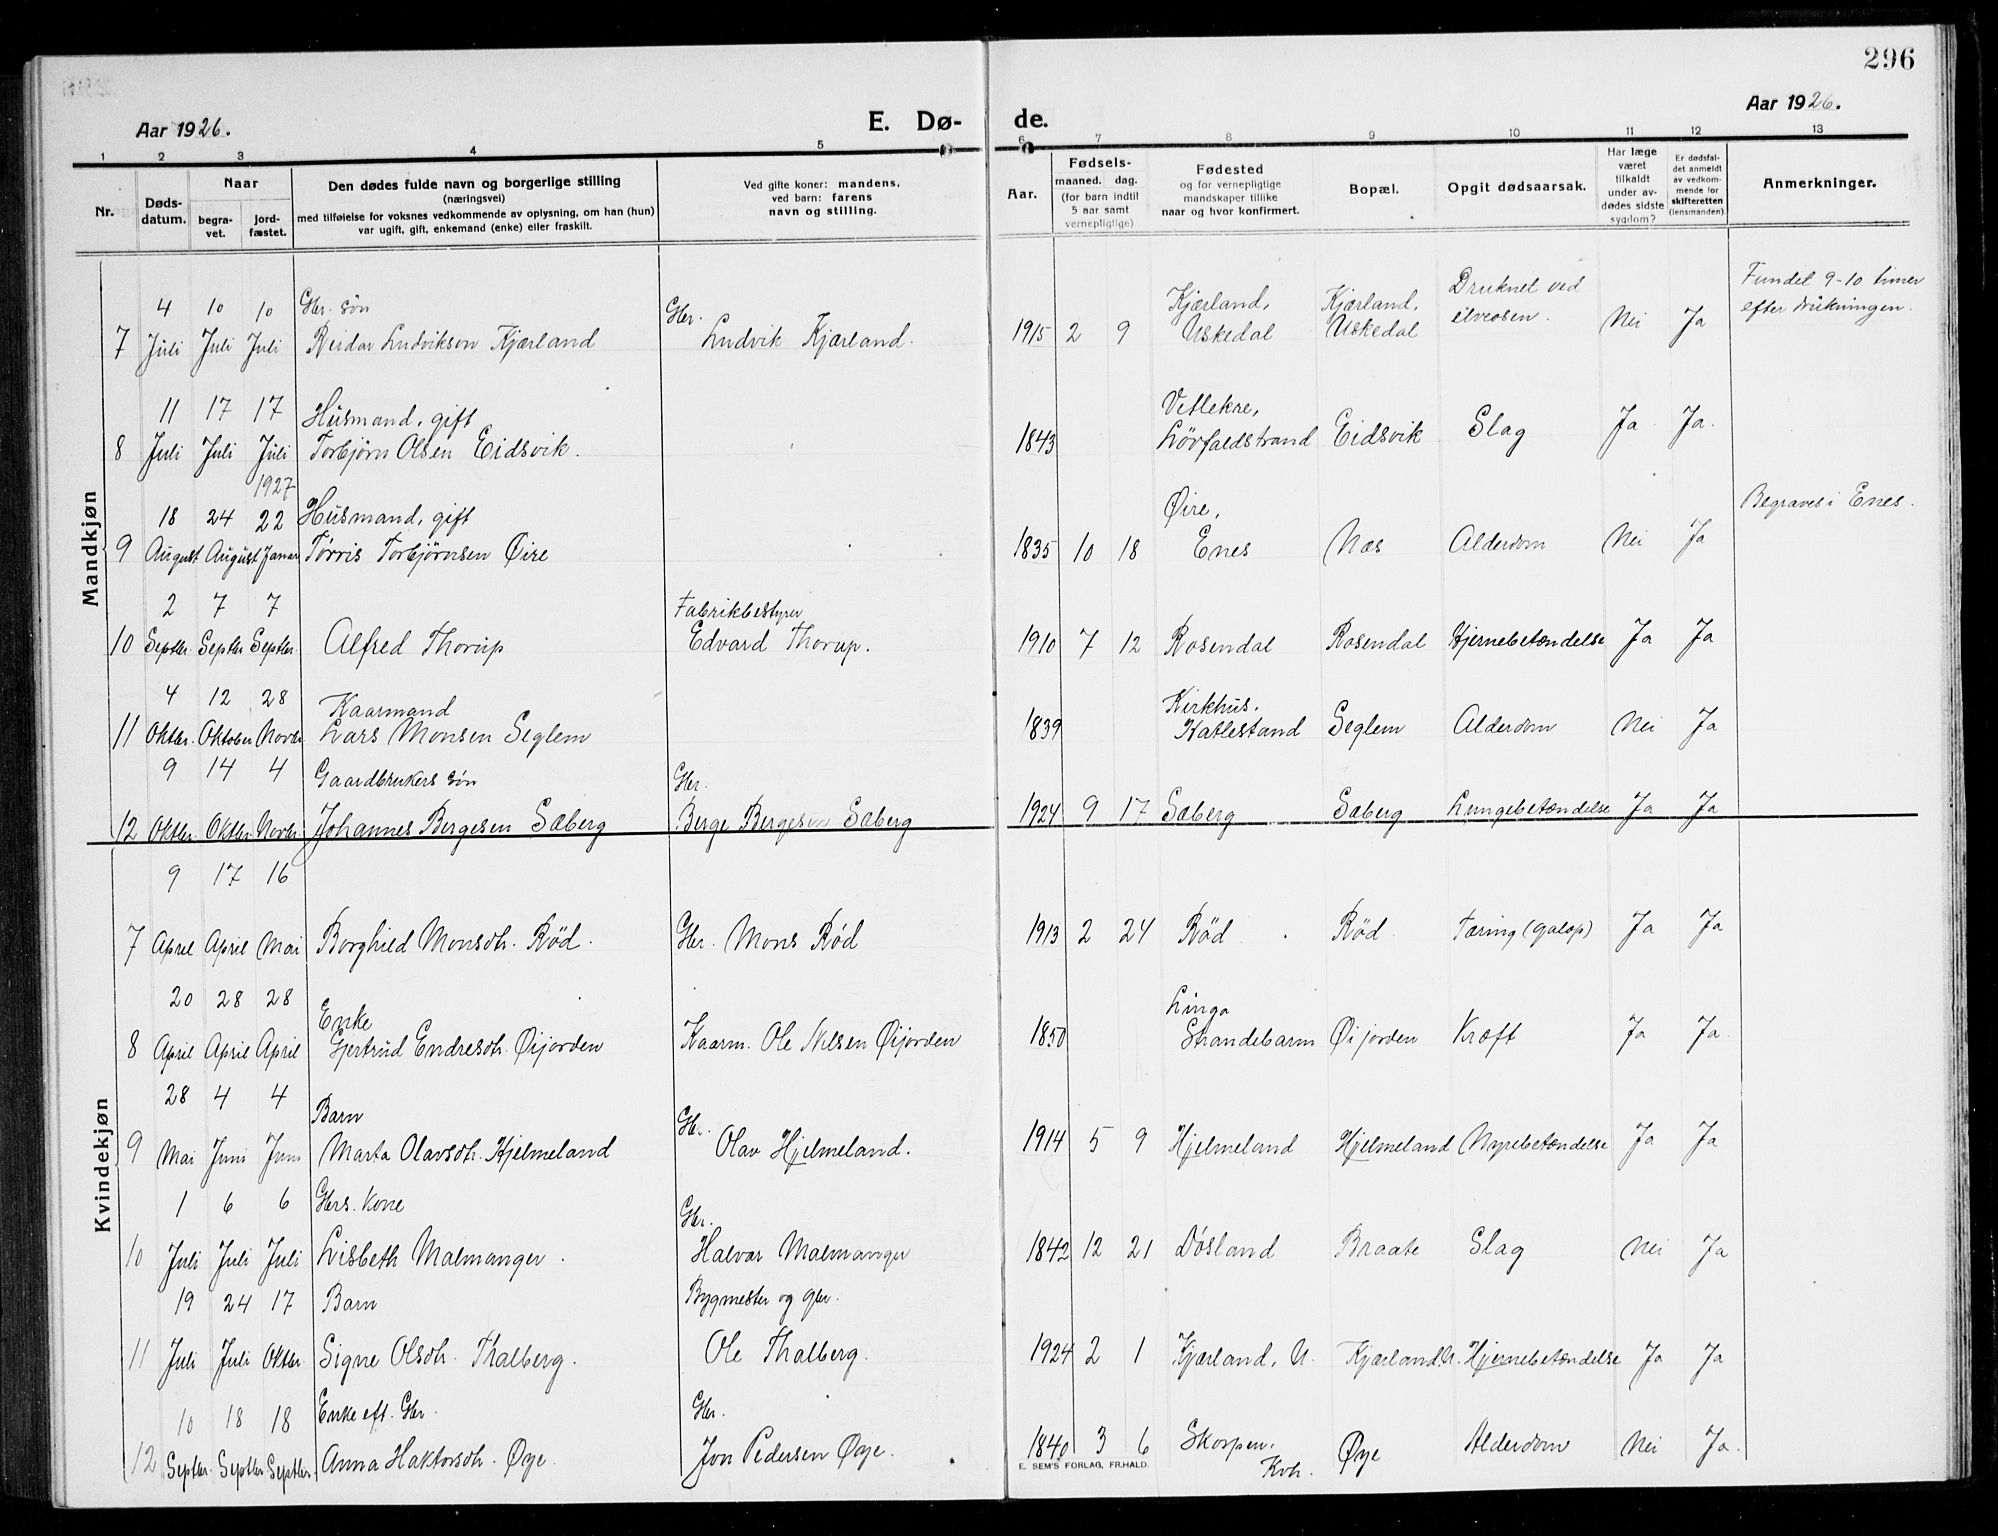 296
Aar 1926. E. Dø- de. Aar 1926.
1 2 3 4 5 6 7 8 9 10 11 12 13
Nr.
Døds-
datum.
Naar
begra-
vet.
jord-
fæstet.
Den dødes fulde navn og borgerlige stilling
(næringsvei)
med tilføielse for voksnes vedkommende av oplysning, om han (hun)
var ugift, gift, enkemand (enke) eller fraskilt.
Ved gifte koner: mandens,
ved barn: farens
navn og stilling.
Aar.
Fødsels-
maaned. dag.
(for barn indtil
5 aar samt
vernepligtige)
Fødested
og for vernepligtige
mandskaper tillike
naar og hvor konfirmert.
Bopæl.
Opgit dødsaarsak.
Har læge
været
tilkaldt
under av-
dødes sidste
sygdom?
Er dødsfal-
det anmeldt
av vedkom-
mende for
skifteretten
(lensmanden).
Anmerkninger.
Mandkjøn
4 10 10 Gbr. søn Gbr. Kjærland, Kjærland, Druknet ved Fundet 9-10 timer
7 Juli Juli Juli Reidar Ludvikson Kjærland Ludvik Kjærland. 1915 2 9 Uskedal Uskedal elveosen. Nei Ja efter drukningen.
11 17 17 Husmand, gift Vetlekre,
8 Juli Juli Juli Torbjørn Olsen Eidsvik. 1843 Løvfaldstrand Eidsvik Slag Ja Ja.
1927
18 24 22 Husmand, gift Øire, Begraves i Enes.
9 August August Januar Tørris Torbjørnsen Øire 1835 10 18 Enes Næs Alderdom Nei Ja
2 7 7 Fabrikbestyrer
10 Septbr. Septbr Septbr. Alfred Thorup Edvard Thorup. 1910 7 12 Rosendal Rosendal Hjernebetændelse Ja Ja
4 12 28 Kaarmand Kirkhus.
11 Oktbr. Oktober Novbr Lars Monsen Seglem 1839 Hatlestand Seglem Alderdom Nei Ja
9 14 4 Gaardbrukers søn Gbr.
12 Oktbr. Oktbr Novbr Johannes Bergesen Sæberg Berge Bergesen Sæberg 1924 9 17 Sæberg Sæberg Lungebetændelse Ja Ja
Kvindekjøn
9 17 16
7 April April Mai Borghild Monsdtr. Rød. Gbr. Mons Rød 1913 2 24 Rød Rød Tæring (galop) Ja Ja
20 28 28 Enke Linga
8 April April April Gjertrud Endresdtr. Øijorden Kaarm. Ole Nilsen Øijorden 1850 Strandebarm Øijorden Kræft Ja Ja.
28 4 4 Barn Gbr.
9 Mai Juni Juni Marta Olavsdtr. Hjelmeland Olav Hjelmeland. 1914 5 9 Hjelmeland Hjelmeland Nyrebetændelse Ja Ja
1 6 6 Gbrs. Kone Gbr.
10 Juli Juli Juli Lisbeth Malmanger. Halvar Malmanger 1842 12 21 Døsland Braate Slag Nei Ja
19 24 17 Barn Bygmester og gbr.
11 Juli Juli Oktbr. Signe Olsdtr. Thalberg. Ole Thalberg. 1924 2 1 Kjærland, U. Kjærland, U. Hjernebetændelse Ja Ja
10 18 18 Enke eft. Gbr. Gbr.
12 Septbr. Septbr Septbr Anna Haktorsdtr. Øye. Jon Pedersen Øye. 1840 3 6 Skorpen, Øye Alderdom Nei Ja.
Kvh.
E. SEM'S FORLAG, FR.HALD.